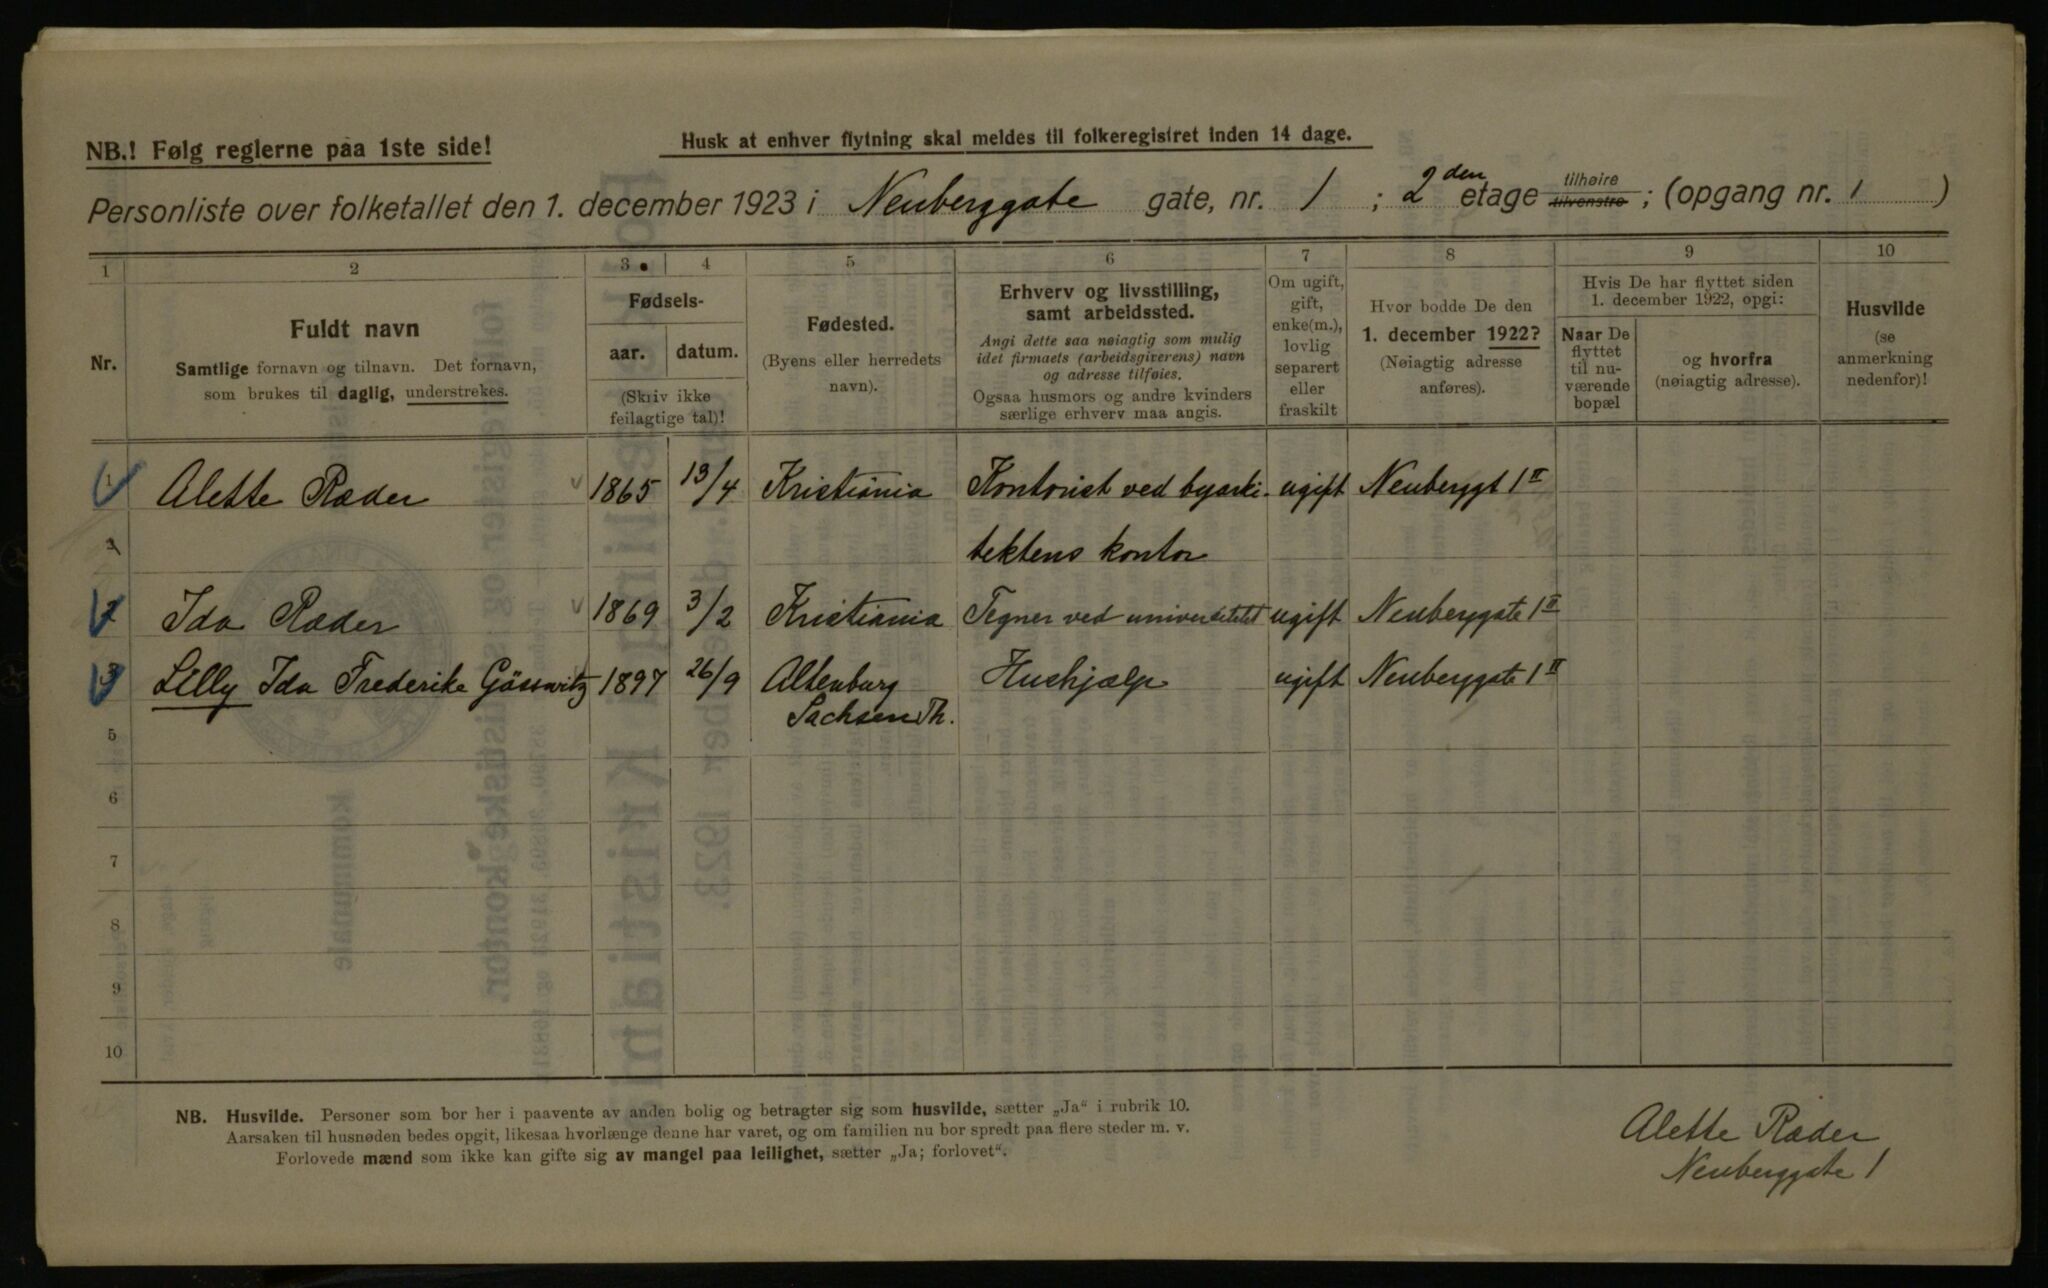 NB.! Følg reglerne paa 1ste side!
Husk at enhver flytning skal meldes til folkeregistret inden 14 dage.
Personliste over folketallet den 1. december 1923 i Neuberggate gate, nr. 1 ; 2den etage tilhøire tilvenstre ; (opgang nr. 1 )
1 2 3 4 5 6 7 8 9 10
Nr.
Fuldt navn
Samtlige fornavn og tilnavn. Det fornavn,
som brukes til daglig, understrekes.
Fødsels-
aar. datum.
(Skriv ikke
feilagtige tal)!
Fødested.
(Byens eller herredets
navn).
Erhverv og livsstilling,
samt arbeidssted.
Angi dette saa nøiagtig som mulig
idet firmaets (arbeidsgiverens) navn
og adresse tilføies.
Ogsaa husmors og andre kvinders
særlige erhverv maa angis.
Om ugift,
gift,
enke(m.),
lovlig
separert
eller
fraskilt
Hvor bodde De den
1. december 1922?
(Nøiagtig adresse
anføres).
Hvis De har flyttet siden
1. december 1922, opgi:
Naar De
flyttet
til nu-
værende
bopæl
og hvorfra
(nøiagtig adresse).
Husvilde
(se
anmerkning
nedenfor)!
1 Alette Ræder 1865 13/4 Kristiania Kontorist ved byarki- ugift Neuberggt 1 II
tektens kontor
2 Ida Ræder 1869 3/2 Kristiania Tegner ved universitetet ugift Neuberggate 1 II
3 Lilly Ida Frederike Gössnitz 1897 26/9 Altenburg Hushjælp ugift Neuberggate 1 II
Sachsen Th.
5
6
7
8
9
10
NB. Husvilde. Personer som bor her i paavente av anden bolig og betragter sig som husvilde, sætter „Ja“ i rubrik 10.
Aarsaken til husnøden bedes opgit, likesaa hvorlænge denne har varet, og om familien nu bor spredt paa flere steder m. v.
Forlovede mænd som ikke kan gifte sig av mangel paa leilighet, sætter „Ja; forlovet“.
Alette Ræder
Neuberggate 1